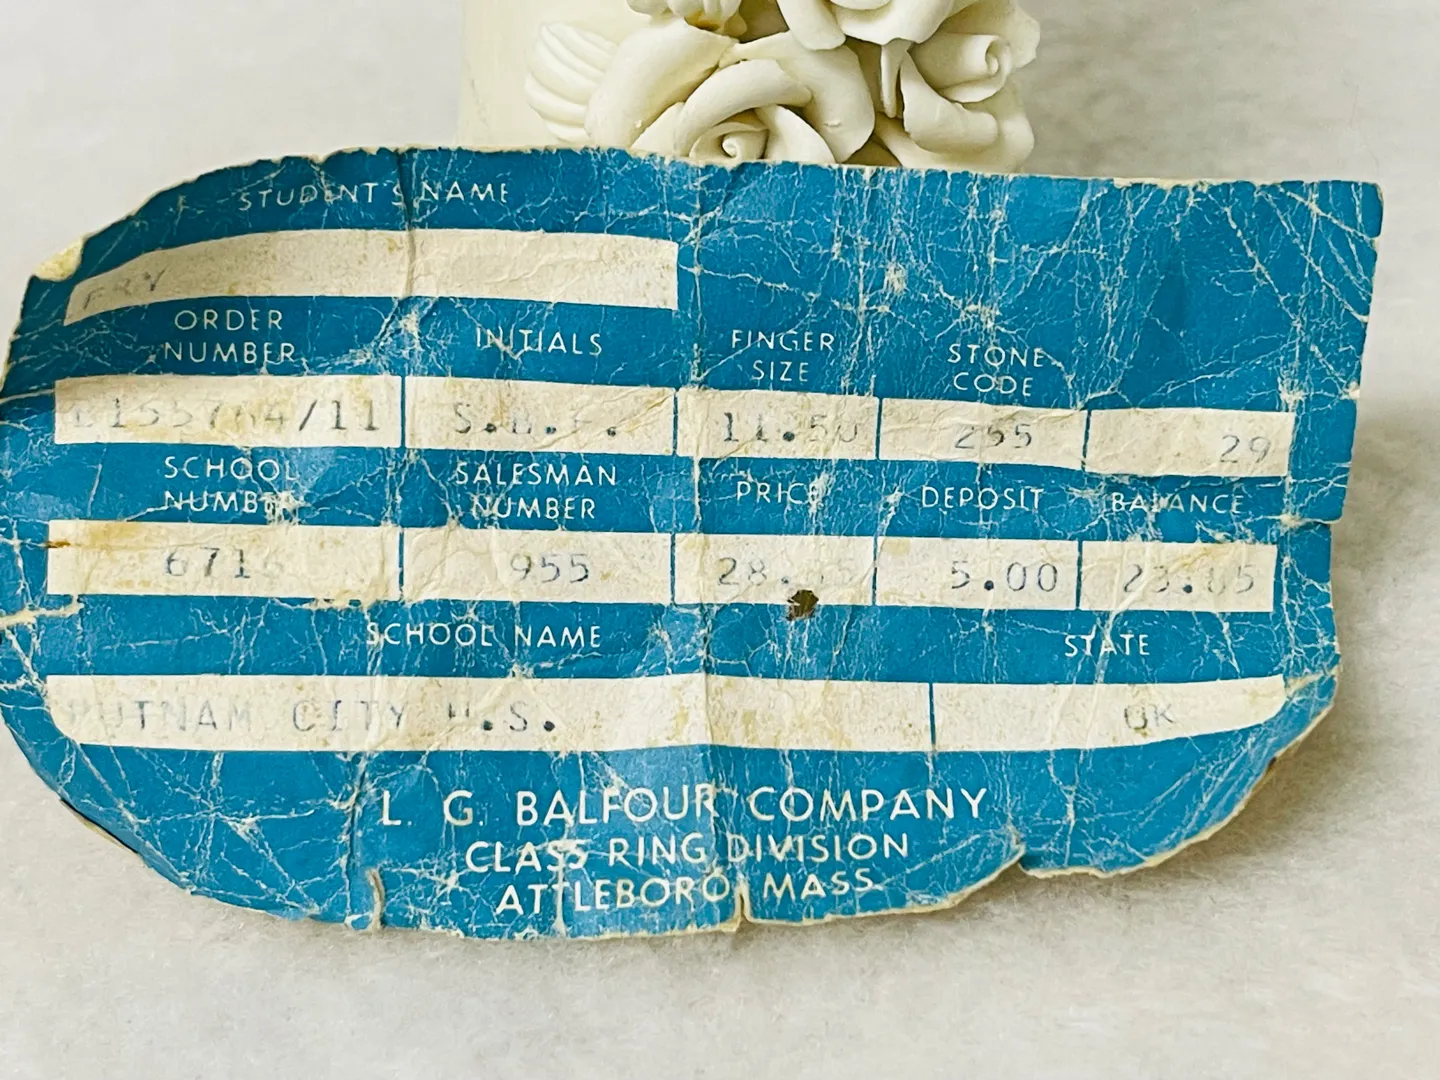 STUDENT'S NAME
FRY
ORDER NUMBER INITIALS FINGER SIZE STONE CODE
11.50 255 29
SCHOOL NUMBER SALESMAN NUMBER PRICE DEPOSIT BALANCE
955 5.00
SCHOOL NAME STATE
PUTNAM CITY OK
L. G. BALFOUR COMPANY
CLASS RING DIVISION
ATTLEBORO, MASS.